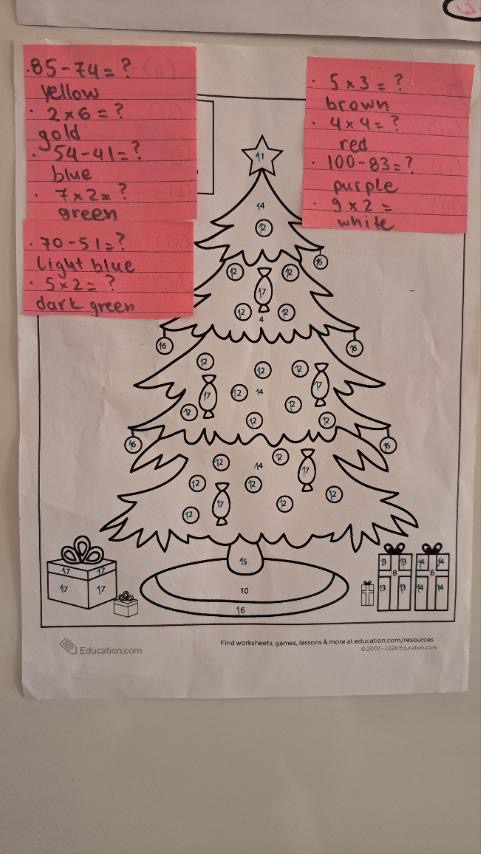 · 85-74=?
yellow
· 2x6=?
gold
· 54-41=?
blue
· 7x2=?
green
· 70-51=?
light blue
· 5x2=?
dark green
· 5x3=?
brown
· 4x4=?
red
· 100-83=?
purple
· 9x2=
white
11
14
12
16
12
12
17
12
12
4
16
16
12
12
12
17
12
14
17
12
12
12
12
16
16
12
12
14
17
12
12
17
12
12
12
15
10
16
17 17
17 17
13 13
8
13 13
14 14
6
14 14
Education.com
Find worksheets, games, lessons & more at education.com/resources
© 2007 - 2024 Education.com